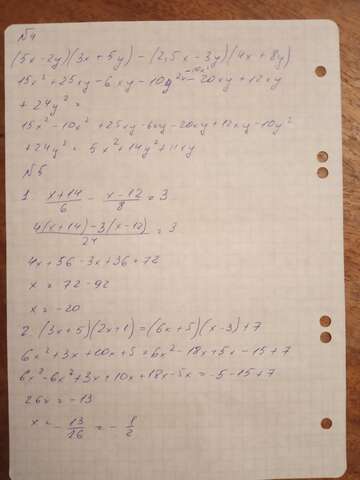 №4
(5x-2y)(3x+5y) - (2,5x-3y)(4x+8y)
15x² + 25xy - 6xy - 10y² - 10x² - 20xy + 12xy
+ 24y² =
15x² - 10x² + 25xy - 6xy - 20xy + 12xy - 10y²
+ 24y² = 5x² + 14y² + 11xy
№5
1. x+14/6 - x-12/8 = 3
4(x+14) - 3(x-12)/24 = 3
4x + 56 - 3x + 36 = 72
x = 72 - 92
x = -20
2. (3x+5)(2x+1) = (6x+5)(x-3) + 7
6x² + 3x + 10x + 5 = 6x² - 18x + 5x - 15 + 7
6x² - 6x² + 3x + 10x + 18x - 5x = -5 - 15 + 7
26x = -13
x = - 13/26 = - 1/2